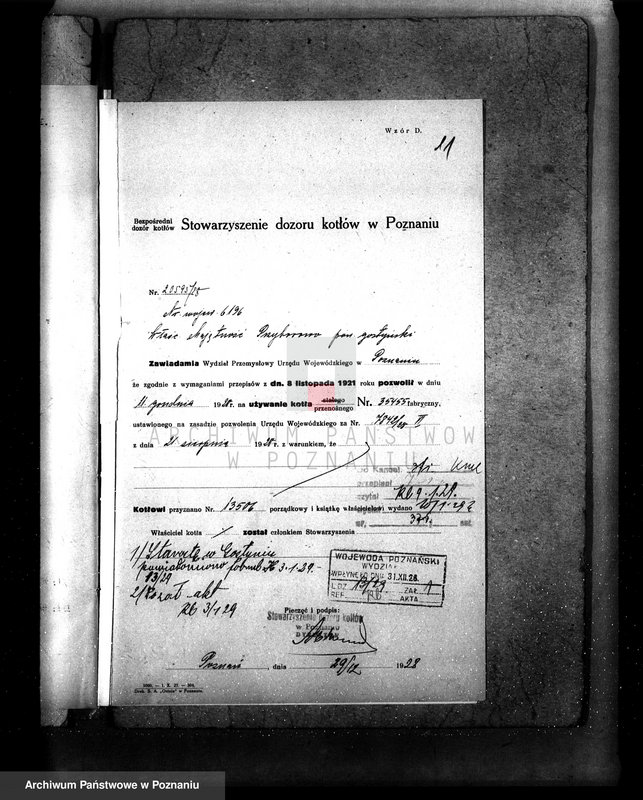 Wzór D.
21
Bezpośredni dozór kotłów Stowarzyszenie dozoru kotłów w Poznaniu
Nr. 20595/28
Nr. wojew. 6196
Właśc. Majętność Przyborowo pow. gostyński
Zawiadamia Wydział Przemysłowy Urzędu Wojewódzkiego w Poznaniu
że zgodnie z wymaganiami przepisów z dn. 8 listopada 1921 roku pozwolił w dniu
11 grudnia 1928 r. na używanie kotła stałego przenośnego Nr. 35455 fabryczny,
ustawionego na zasadzie pozwolenia Urzędu Wojewódzkiego za Nr. 7842/28 II
z dnia 21 sierpnia 1928 r. z warunkiem, że
ARCHIWUM PAŃSTWOWE
W POZNANIU
do Kancel.
przepisał
czytał Rb 9.1.29.
Kotłowi przyznano Nr. 13506 porządkowy i książkę właścicielowi wydano 10/1.29
Właściciel kotła został członkiem Stowarzyszenia
1/ Starostę w Gostyniu
powiadomiono 3.1.29.
13/29
2/ akt
Rb 3/1 29
WOJEWODA POZNAŃSKI
WYDZIAŁ
WPŁYNĘŁO DNIA 31.XII.28.
L.DZ. 13/29 ZAŁ. 1
REF. Rb AKTA
Pieczęć i podpis:
Stowarzyszenie dozoru kotłów
w Poznaniu
Poznań, dnia 29/12 1928
1000. — I. X. 27. — 304.
Druk. S. A. „Ostoja" w Poznaniu.
Archiwum Państwowe w Poznaniu